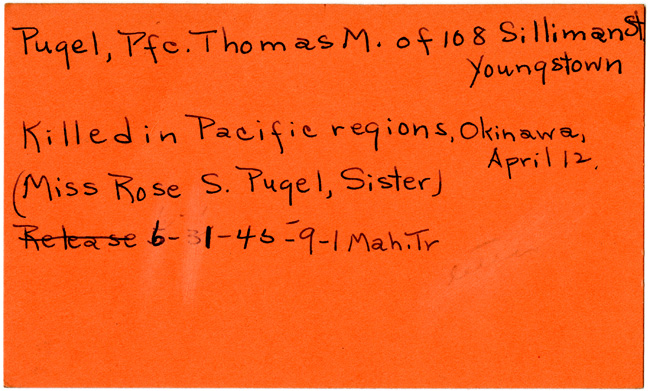 Pugel, Pfc. Thomas M. of 108 Silliman St,
Youngstown
Killed in Pacific regions, Okinawa,
April 12.
(Miss Rose S. Pugel, Sister)
Release 6-31-45-9-1 Mah. Tr